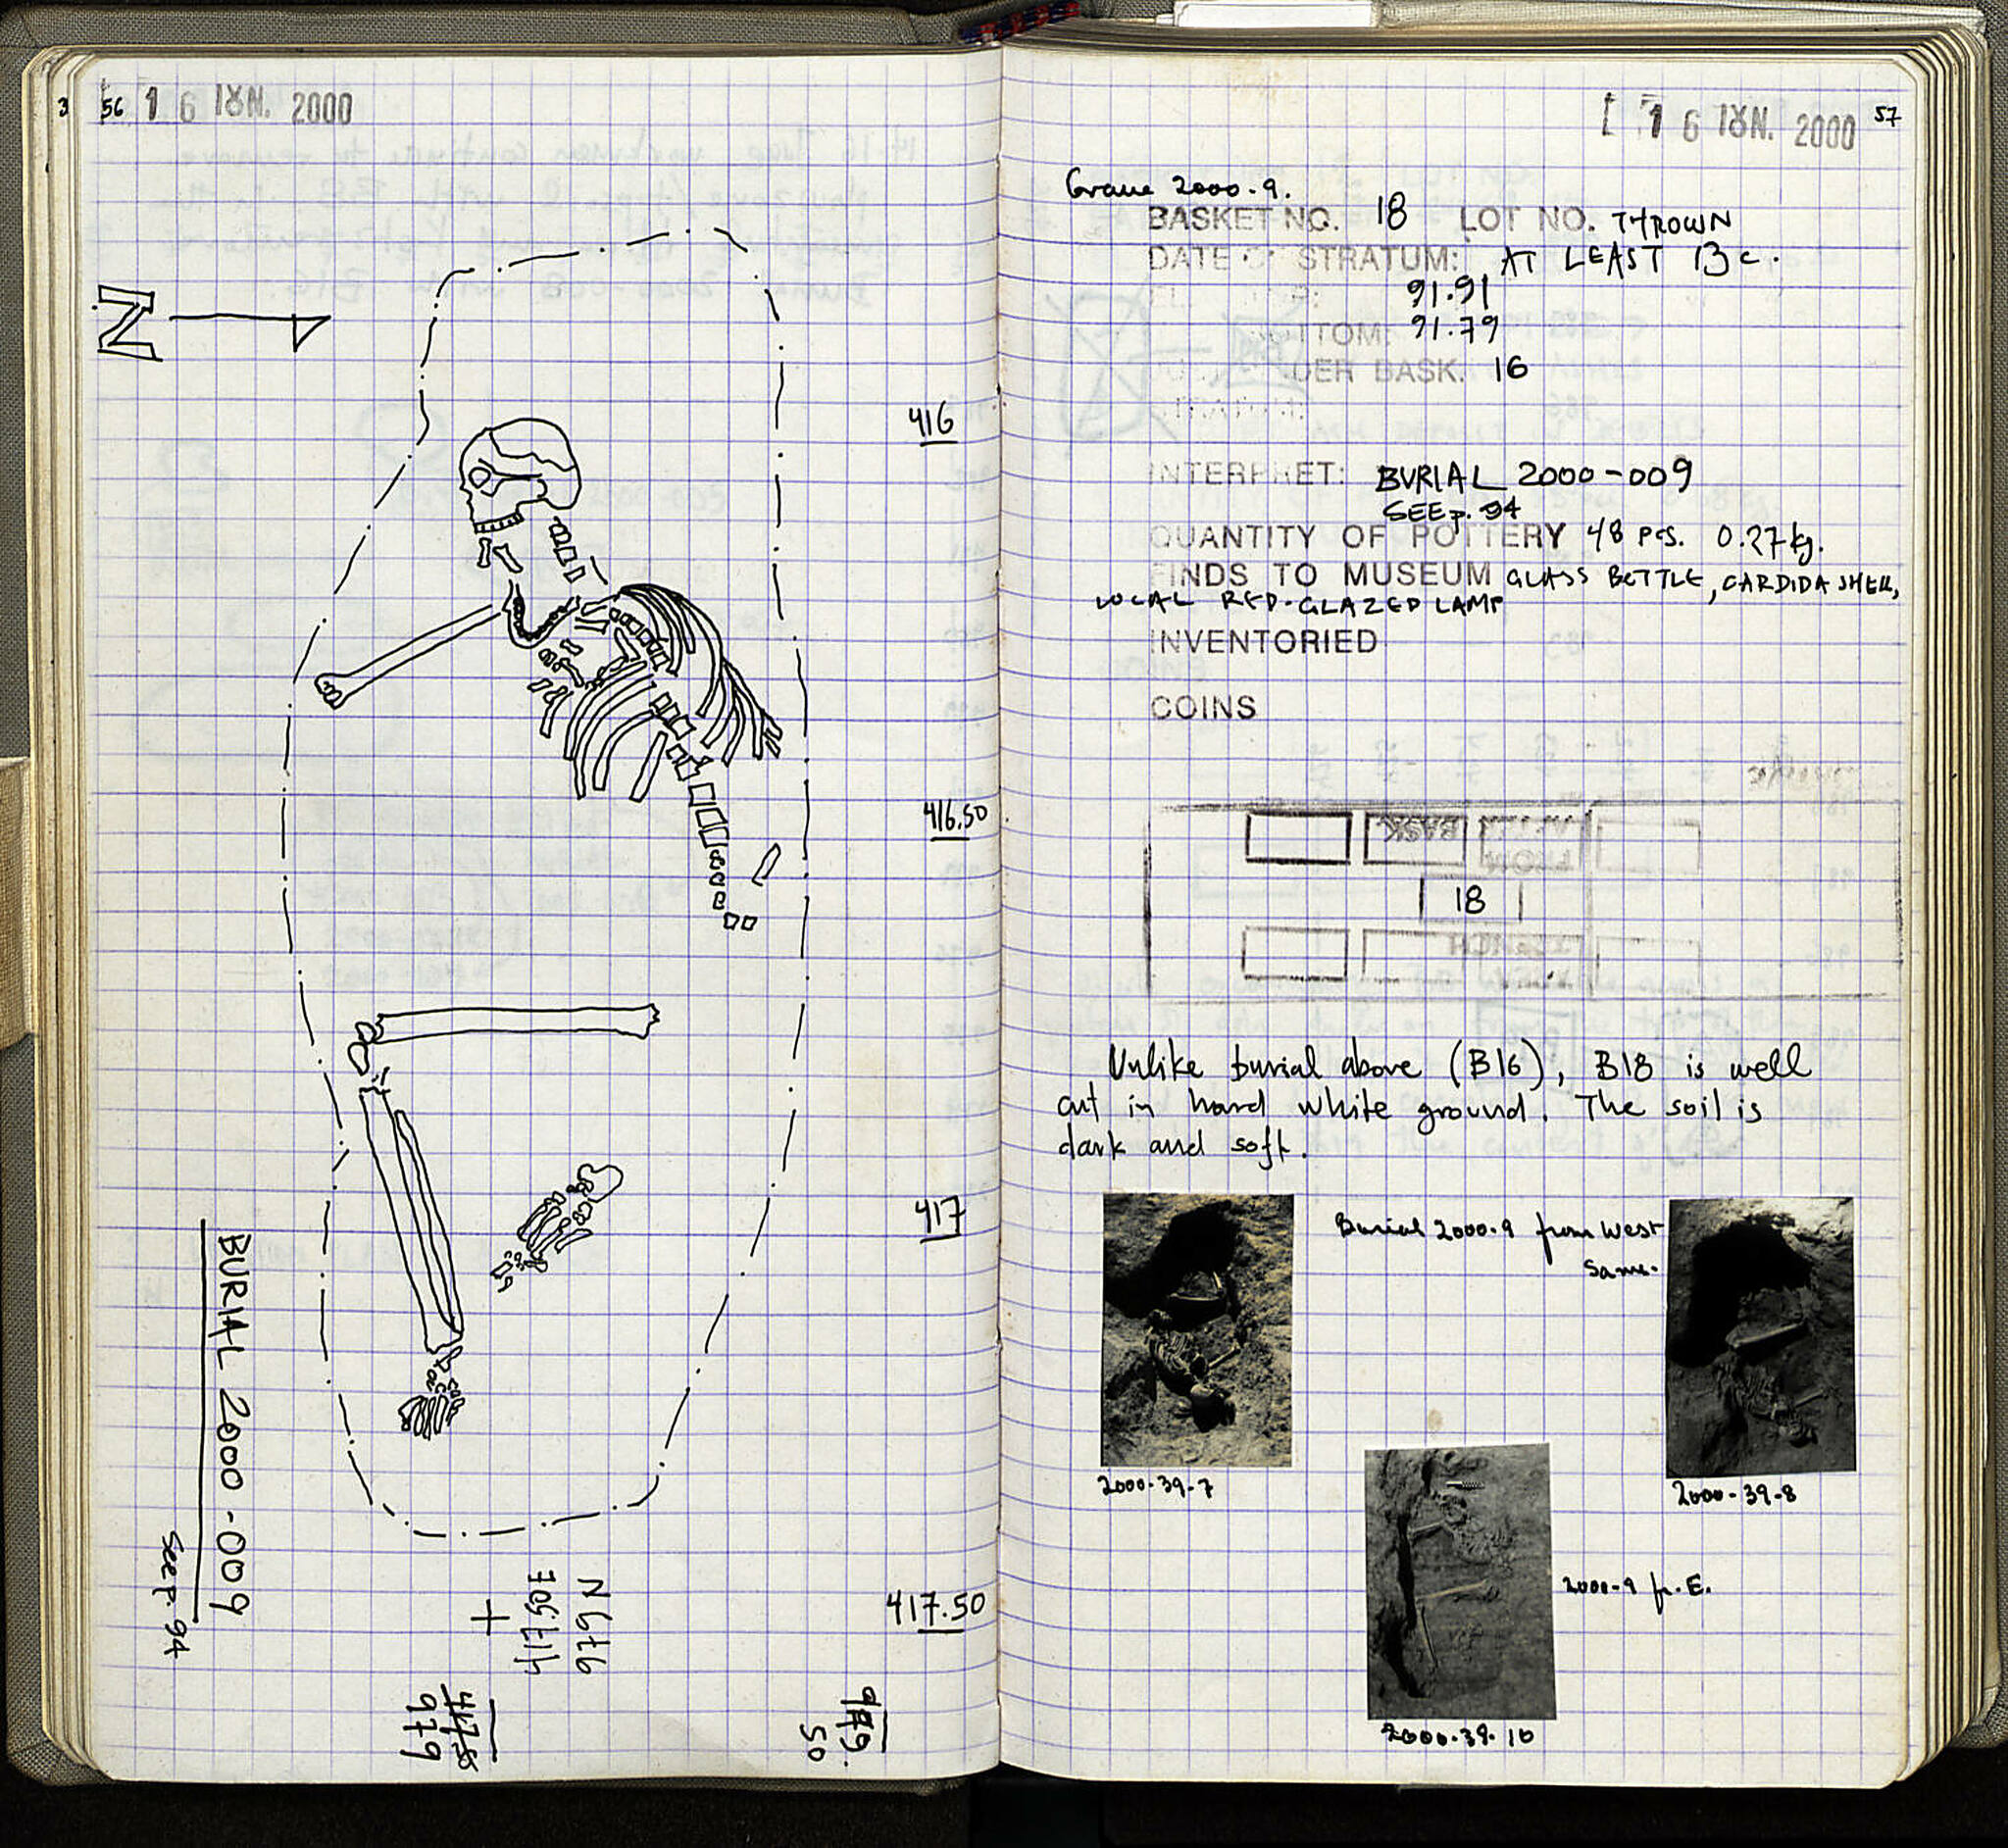 3
56 16 ΙΟΥΝ. 2000
N
416
416.50
417
417.50
BURIAL 2000-009
See p. 94
N 979
417.50E
+
417.50
979
979.
50
16 ΙΟΥΝ. 2000 57
Grave 2000.9.
BASKET NO. 18 LOT NO. THROWN
DATE OF STRATUM: AT LEAST 13 c.
91.91
BOTTOM: 91.79
UNDER BASK. 16
STRATUM:
INTERPRET: BURIAL 2000-009
SEE p. 94
QUANTITY OF POTTERY 48 pcs. 0.27 kg.
FINDS TO MUSEUM GLASS BOTTLE, CARDIDA SHELL,
LOCAL RED-GLAZED LAMP
INVENTORIED
COINS
BASK
FROM
18
Unlike burial above (B16), B18 is well
cut in hard white ground. The soil is
dark and soft.
Burial 2000.9 from West
Same.
2000-39-7
2000-39-8
2000-9 fr. E.
2000.39.10